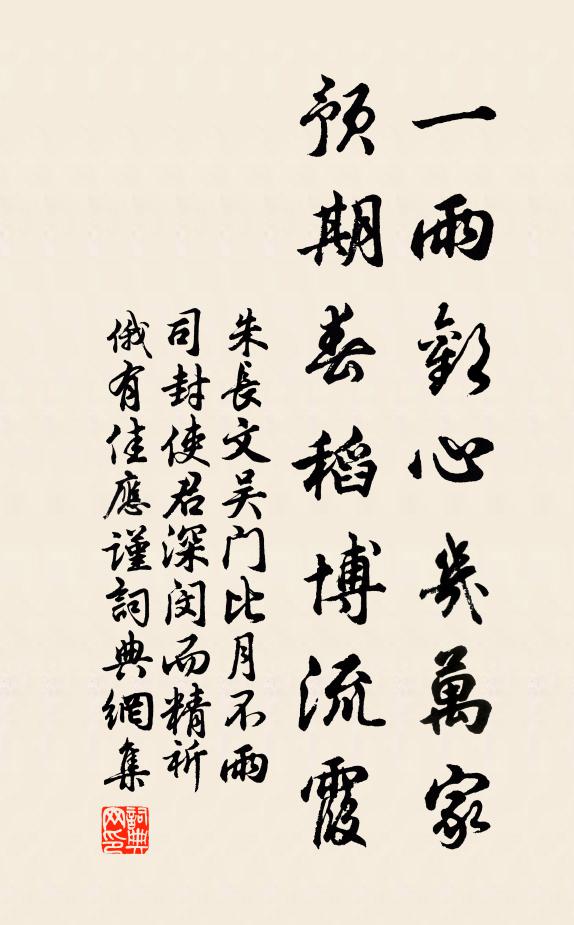 一雨歡心幾萬家
預期春稻博流霞
朱長文吴门比月不雨
司封使君深闵而精祈
俄有佳應謹詞典網集
詞典网印